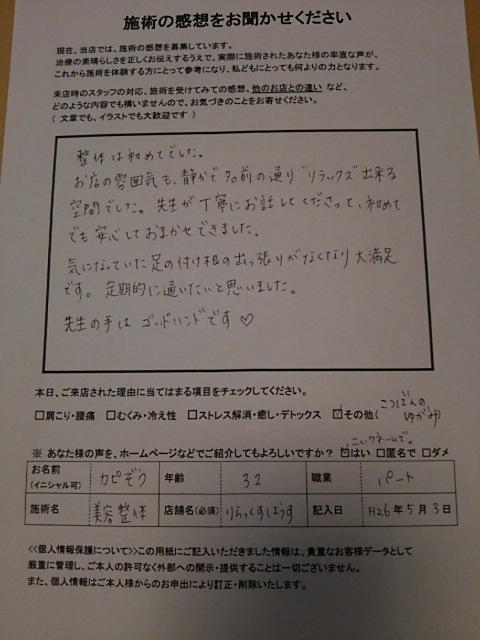 施術の感想をお聞かせください
現在、当店では、施術の感想を募集しています。
治療の素晴らしさを正しくお伝えするうえで、実際に施術されたあなた様の率直な声が、
これから施術を体験する方にとって参考になり、私どもにとっても何よりの力となります。
来店時のスタッフの対応、施術を受けてみての感想、他のお店との違い など、
どのような内容でも構いませんので、お気づきのことをお寄せください。
( 文章でも、イラストでも大歓迎です )
整体は初めてでした。
お店の雰囲気も、静かで名前の通り"リラックス"出来る
空間でした。先生が丁寧にお話してくださって、初めて
でも安心しておまかせできました。
気になっていた足の付け根の出っ張りがなくなり大満足
です。定期的に通いたいと思いました。
先生の手はゴッドハンドです♡
本日、ご来店された理由に当てはまる項目をチェックしてください。
□肩こり・腰痛 □むくみ・冷え性 □ストレス解消・癒し・デトックス ☑その他(こつばんのゆがみ)
ニックネームで。
※ あなた様の声を、ホームページなどでご紹介してもよろしいですか？ ☑はい □匿名で □ダメ
お名前(イニシャル可) カピぞう 年齢 32 職業 パート
施術名 美容整体 店舗名(必須) りらっくすはうす 記入日 H26年5月3日
<<個人情報保護について>>この用紙にご記入いただきました情報は、貴重なお客様データとして
厳重に管理し、ご本人の許可なく外部への開示・提供することは一切ございません。
また、個人情報はご本人様からのお申出により訂正・削除いたします。